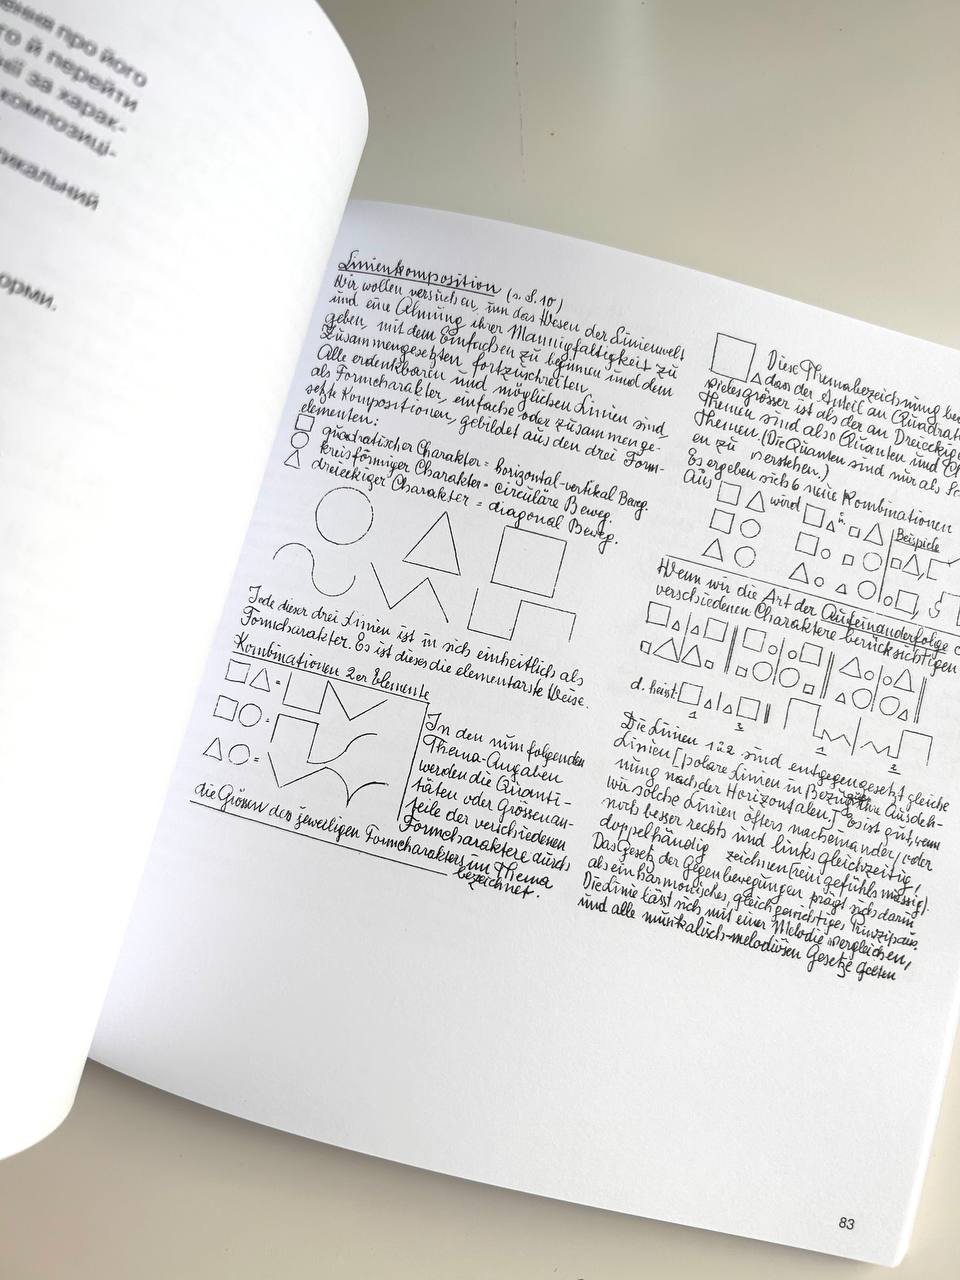 ення про його
го й перейти
ії за харак-
композиці-
икальний
орми.
Linienkomposition (s. S. 10)
Wir wollen versuchen, um das Wesen der Linienwelt
und eine Ahnung ihrer Mannigfaltigkeit zu
geben, mit dem Einfachen zu beginnen und dem
Zusammengesetzten fortzuschreiten.
Alle erdenkbaren und möglichen Linien sind,
als Formcharakter, einfache oder zusammenge-
setzte Kompositionen, gebildet aus den drei Form-
elementen:
quadratischer Charakter = horizontal-vertikal Beweg.
kreisförmiger Charakter = circuläre Beweg.
dreieckiger Charakter = diagonal Beweg.
Jede dieser drei Linien ist in sich einheitlich als
Formcharakter. Es ist dieses die elementarste Weise.
Kombinationen 2er Elemente
In den nun folgenden
Thema-Angaben
werden die Quanti-
täten oder Grössenan-
teile der verschiedenen
Formcharaktere durch
die Grössen des jeweiligen Formcharakters im Thema
bezeichnet.
Diese Themabezeichnung be
dass der Anteil an Quadrat
vieles grösser ist als der an Dreiecki
Themen sind also Quanten und
Themen. (Die Quanten sind nur als Sc
en zu verstehen.)
Es ergeben sich 6 neue Kombinationen
Aus wird u.
Beispiele
Wenn wir die Art der Aufeinanderfolge d
verschiedenen Charaktere berücksichtigen
d. heist:
1 2
1 2
Die Linien 1 & 2 sind entgegengesetzt gleiche
Linien [polare Linien in Bezug auf ihre Ausdeh-
nung nach der Horizontalen.] Es ist gut, wenn
wir solche Linien öfters nacheinander, oder
noch besser rechts und links gleichzeitig,
doppelhändig zeichnen (rein gefühlsmässig).
Das Gesetz der Gegenbewegungen prägt sich darin
als ein harmonisches, gleichgewichtiges Prinzip aus.
Die Linie lässt sich mit einer Melodie vergleichen,
und alle musikalisch-melodiösen Gesetze gelten
83